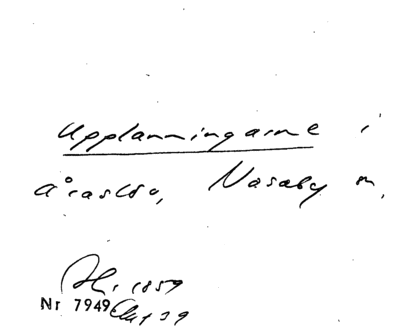 Upplanningarne i
Åraslöv, Nosaby sn.
1859
Nr 7949